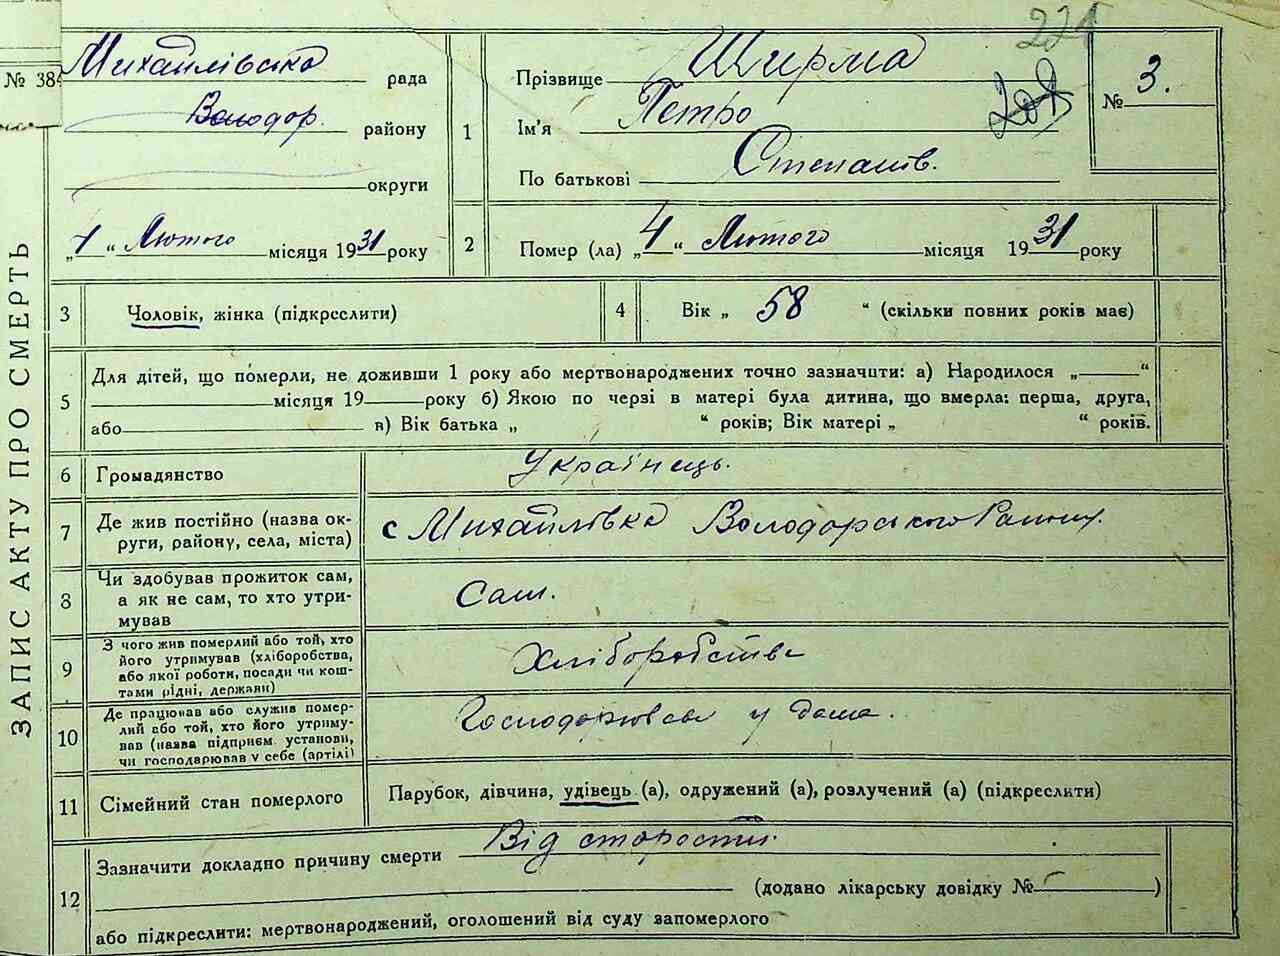 221
№ 384
Михайлівська рада
Володор. району
округи
„4“ Лютого місяця 1931 року
ЗАПИС АКТУ ПРО СМЕРТЬ
1 Прізвище Ширма
Ім'я Петро
По батькові Степанів.
№ 3.
2 Помер (ла) „4“ Лютого місяця 1931 року
3 Чоловік, жінка (підкреслити)
4 Вік „ 58 “ (скільки повних років має)
5 Для дітей, що померли, не доживши 1 року або мертвонароджених точно зазначити: а) Народилося „ “
місяця 19 року б) Якою по черзі в матері була дитина, що вмерла: перша, друга,
або в) Вік батька „ “ років; Вік матері „ “ років.
6 Громадянство Українець.
7 Де жив постійно (назва ок-
руги, району, села, міста) с Михайлівка Володорського Району.
8 Чи здобував прожиток сам,
а як не сам, то хто утри-
мував Сам.
9 З чого жив померлий або той, хто
його утримував (хліборобства,
або якої роботи, посади чи кош-
тами рідні, держави) Хліборобства
10 Де працював або служив помер-
лий або той, хто його утриму-
вав (назва підприєм. установи,
чи господарював у себе (артілі) Господорював у дома.
11 Сімейний стан померлого Парубок, дівчина, удівець (а), одружений (а), розлучений (а) (підкреслити)
12 Зазначити докладно причину смерти Від старости.
(додано лікарську довідку № )
або підкреслити: мертвонароджений, оголошений від суду запомерлого